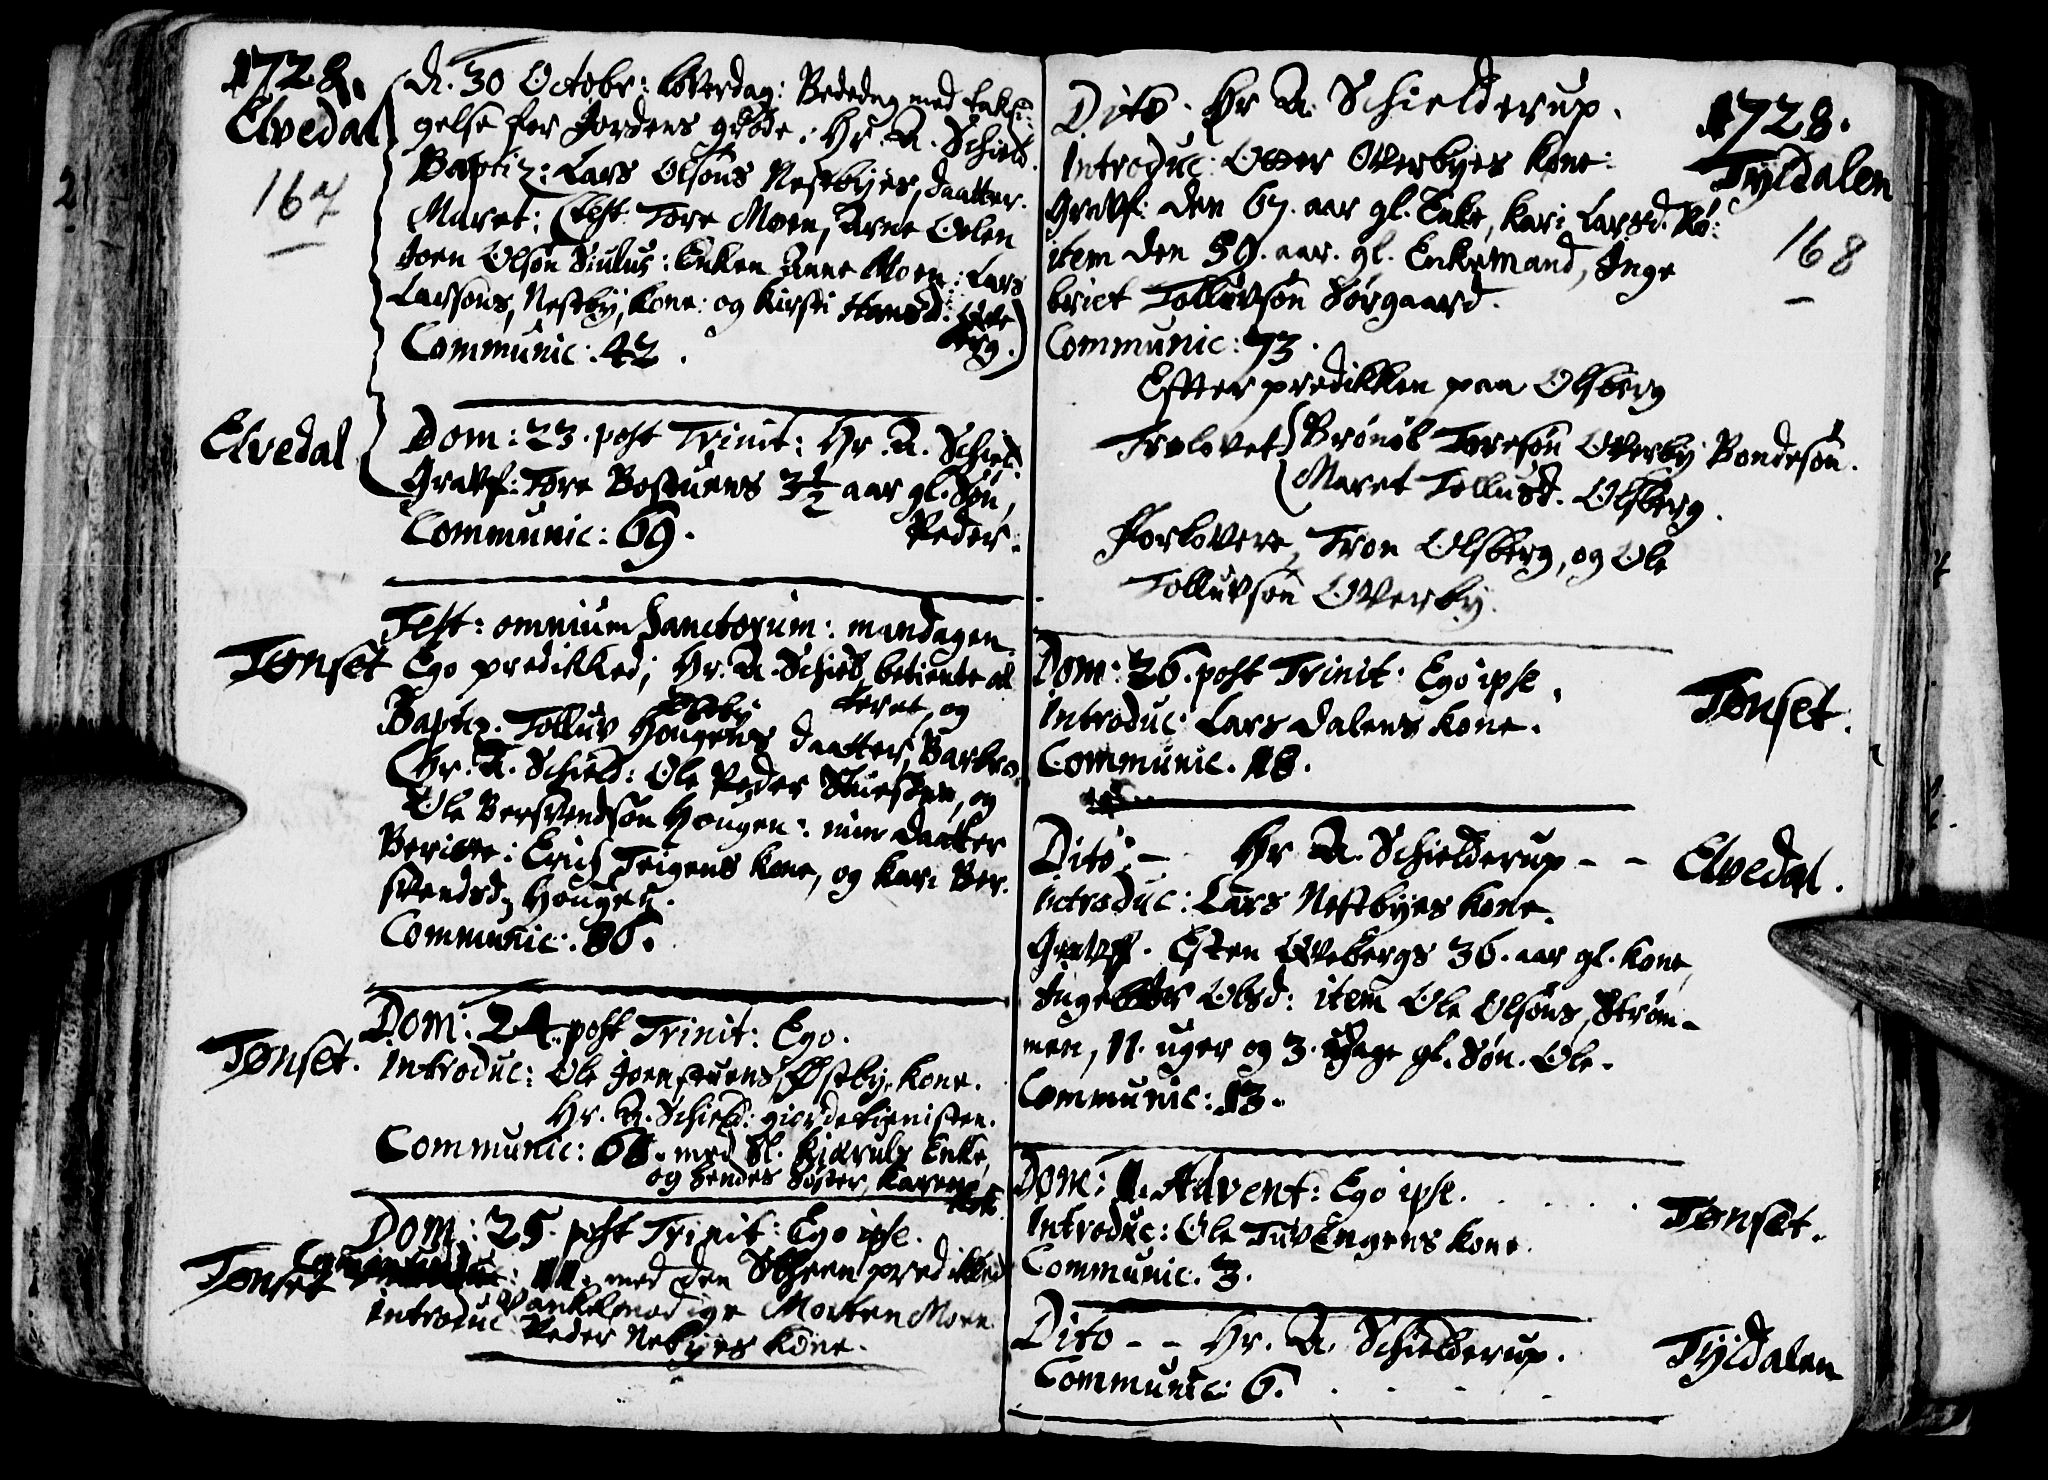 1728.
Elvedal
167
D. 30 Octobr: løverdag: Bededag med taksi-
gelse for Jordens grøde: Hr. A. Schield.
Baptiz: Lars Olsøns Nestbyes, daatter.
Maret: (Test: Tore Moen, Arne
Joen Olsøn Siulus: Enken Anne Moen: Lars
Larsøns, Nestby, kone: og Kirsti Hansd:
berg.)
Communic: 42.
Elvedal
Dom: 23. post Trinit: Hr. A. Schield.
Gravf: Tore Bostuens 3½ aar gl. Søn,
Peder.
Communic: 69.
Tønset
Fest: omnium Sanctorum: mandagen
Ego predikked; Hr. A. Schield betiente al
teret, og
Baptiz. Tolluv Hougens daatter, Barbro.
(Hr. A. Schield: Ole Peder Stuesten, og
Ole Bersvendsøn Hougen: min daatter
Berite: Erich Teigens kone, og Kari Ber-
svendsd. Hougen.
Communic: 86.
Tønset.
Dom: 24. post Trinit: Ego.
Introduc: Ole Joenstuens, Østby, kone.
Hr. A. Schield: giorde tienisten.
Communic: 68. med Sl. Enke,
og hendes Søster, Karen
Tønset
Dom: 25. post Trinit: Ego ipse.
Communic: 11. med den predikked
vankelmodige Morten Moen
Introduc Peder Nebyes kone.
1728.
Tyldalen
168
Dito. Hr A. Schielderup.
Introduc: Otter Overbyes kone:
Gravf: den 67. aar gl. Enke, Kari Larsd. Rø:
item den 59. aar. gl. Enkemand, Inge
briet Tolluvsøn Sørgaard.
Communic: 73.
Efter predikken paa Olsberg
Trolovet (Brønil Toresøn Overby Bondesøn.
(Maret Tollusd. Olsberg.
Forlovere, Tron Olsberg, og Ole
Tolluvsøn Overby.
Tønset.
Dom: 26. post Trinit: Ego ipse.
Introduc: Lars Dalens kone.
Communic. 18.
Elvedal.
Dito: – Hr A. Schielderup – –
Introduc: Lars Nestbyes kone.
Gravf. Esten Qvebergs 36. aar gl. kone,
Olsd: item Ole Olsøns, Strøm-
men, 11. uger og 3. dage gl. Søn. Ole.
Communic: 13.
Tønset.
Dom: 1. Advent: Ego ipse.
Introduc: Ole TuvEngens kone.
Communic. 3.
Tyldalen
Dito – – Hr. A. Schielderup.
Communic: 6.